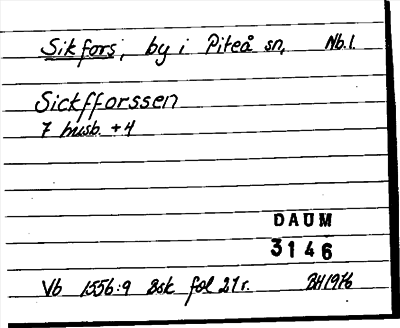 Sikfors, by i Piteå sn, Nb.l.
Sickfforssen
7 husb. + 4
DAUM
3146
Vb 1556:9 Bsk fol 21r. BH1976